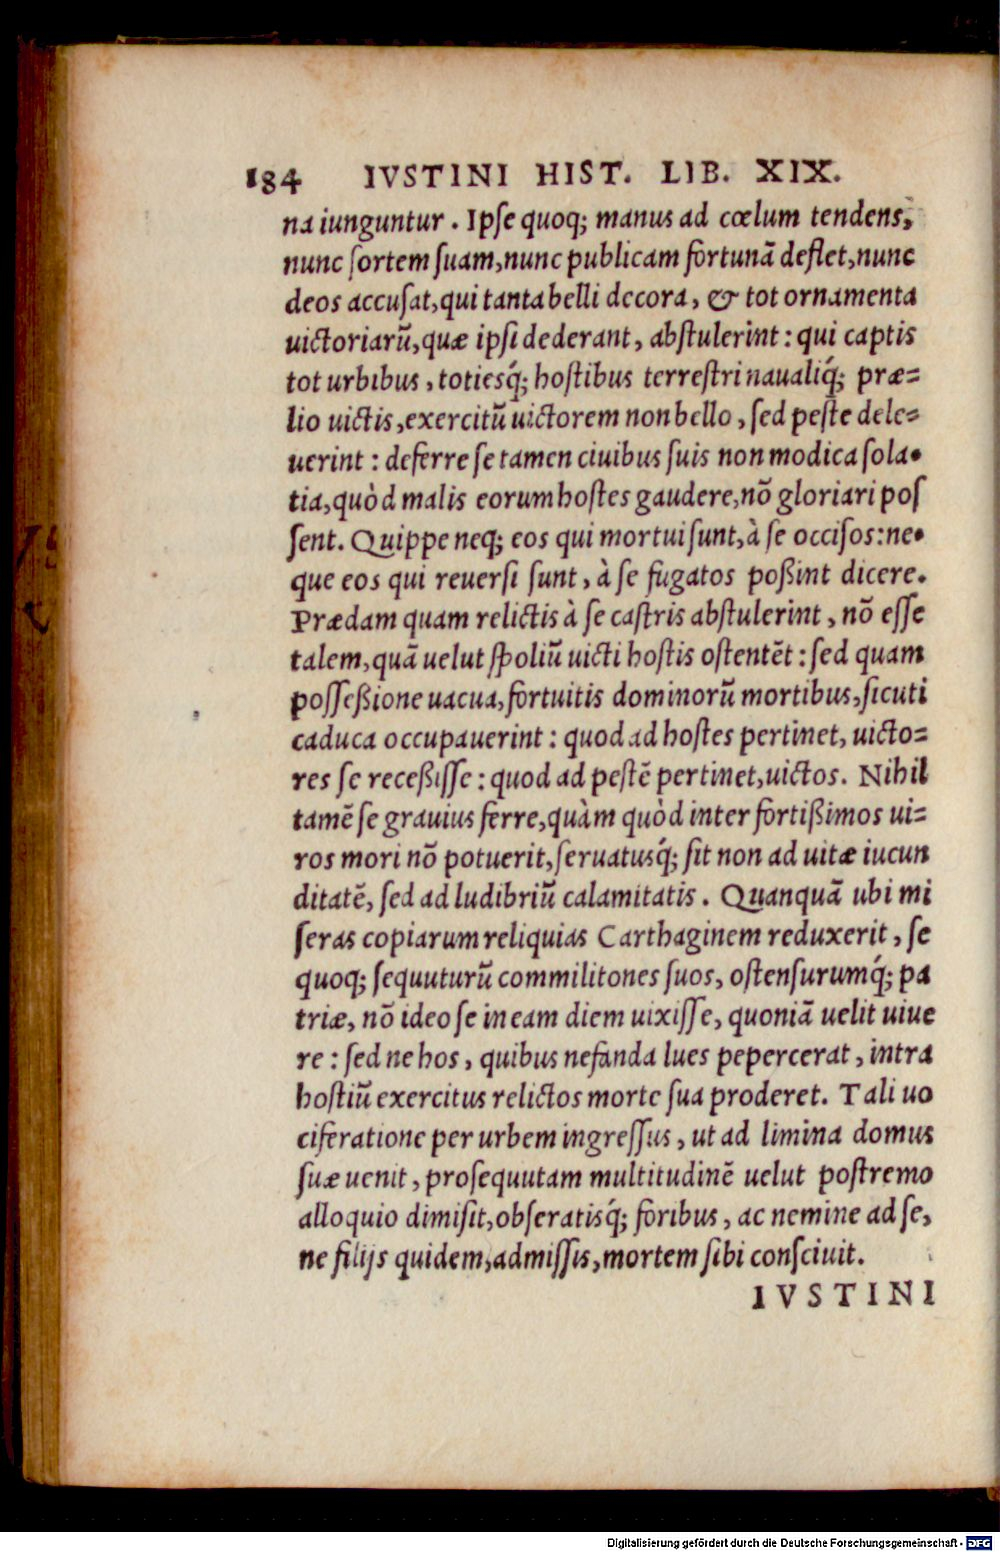 184 IVSTINI HIST. LIB. XIX.
na iunguntur. Ipſe quoq; manus ad cœlum tendens,
nunc ſortem ſuam, nunc publicam fortunã deflet, nunc
deos accuſat, qui tanta belli decora, & tot ornamenta
uictoriarũ, quæ ipſi dederant, abſtulerint: qui captis
tot urbibus, totiesq́; hoſtibus terreſtri naualiq́; præ=
lio uictis, exercitũ uictorem non bello, ſed peſte dele=
uerint: deferre ſe tamen ciuibus ſuis non modica ſola-
tia, quòd malis eorum hoſtes gaudere, nõ gloriari poſ
ſent. Quippe neq; eos qui mortui ſunt, à ſe occiſos: ne-
que eos qui reuerſi ſunt, à ſe fugatos poßint dicere.
Prædam quam relictis à ſe caſtris abſtulerint, nõ eſſe
talem, quã uelut ſpoliũ uicti hoſtis oſtentẽt: ſed quam
poſſeßione uacua, fortuitis dominorũ mortibus, ſicuti
caduca occupauerint: quod ad hoſtes pertinet, uicto=
res ſe receßiſſe: quod ad peſtẽ pertinet, uictos. Nihil
tamẽ ſe grauius ferre, quàm quòd inter fortißimos ui=
ros mori nõ potuerit, ſeruatusq́; ſit non ad uitæ iucun
ditatẽ, ſed ad ludibriũ calamitatis. Quanquã ubi mi
ſeras copiarum reliquias Carthaginem reduxerit, ſe
quoq; ſequuturũ commilitones ſuos, oſtenſurumq́; pa
triæ, nõ ideo ſe in eam diem uixiſſe, quoniã uelit uiue
re: ſed ne hos, quibus nefanda lues pepercerat, intra
hoſtiũ exercitus relictos morte ſua proderet. Tali uo
ciferatione per urbem ingreſſus, ut ad limina domus
ſuæ uenit, proſequutam multitudinẽ uelut poſtremo
alloquio dimiſit, obſeratisq́; foribus, ac nemine ad ſe,
ne filijs quidem, admiſſis, mortem ſibi conſciuit.
IVSTINI
Digitalisierung gefördert durch die Deutsche Forschungsgemeinschaft - DFG